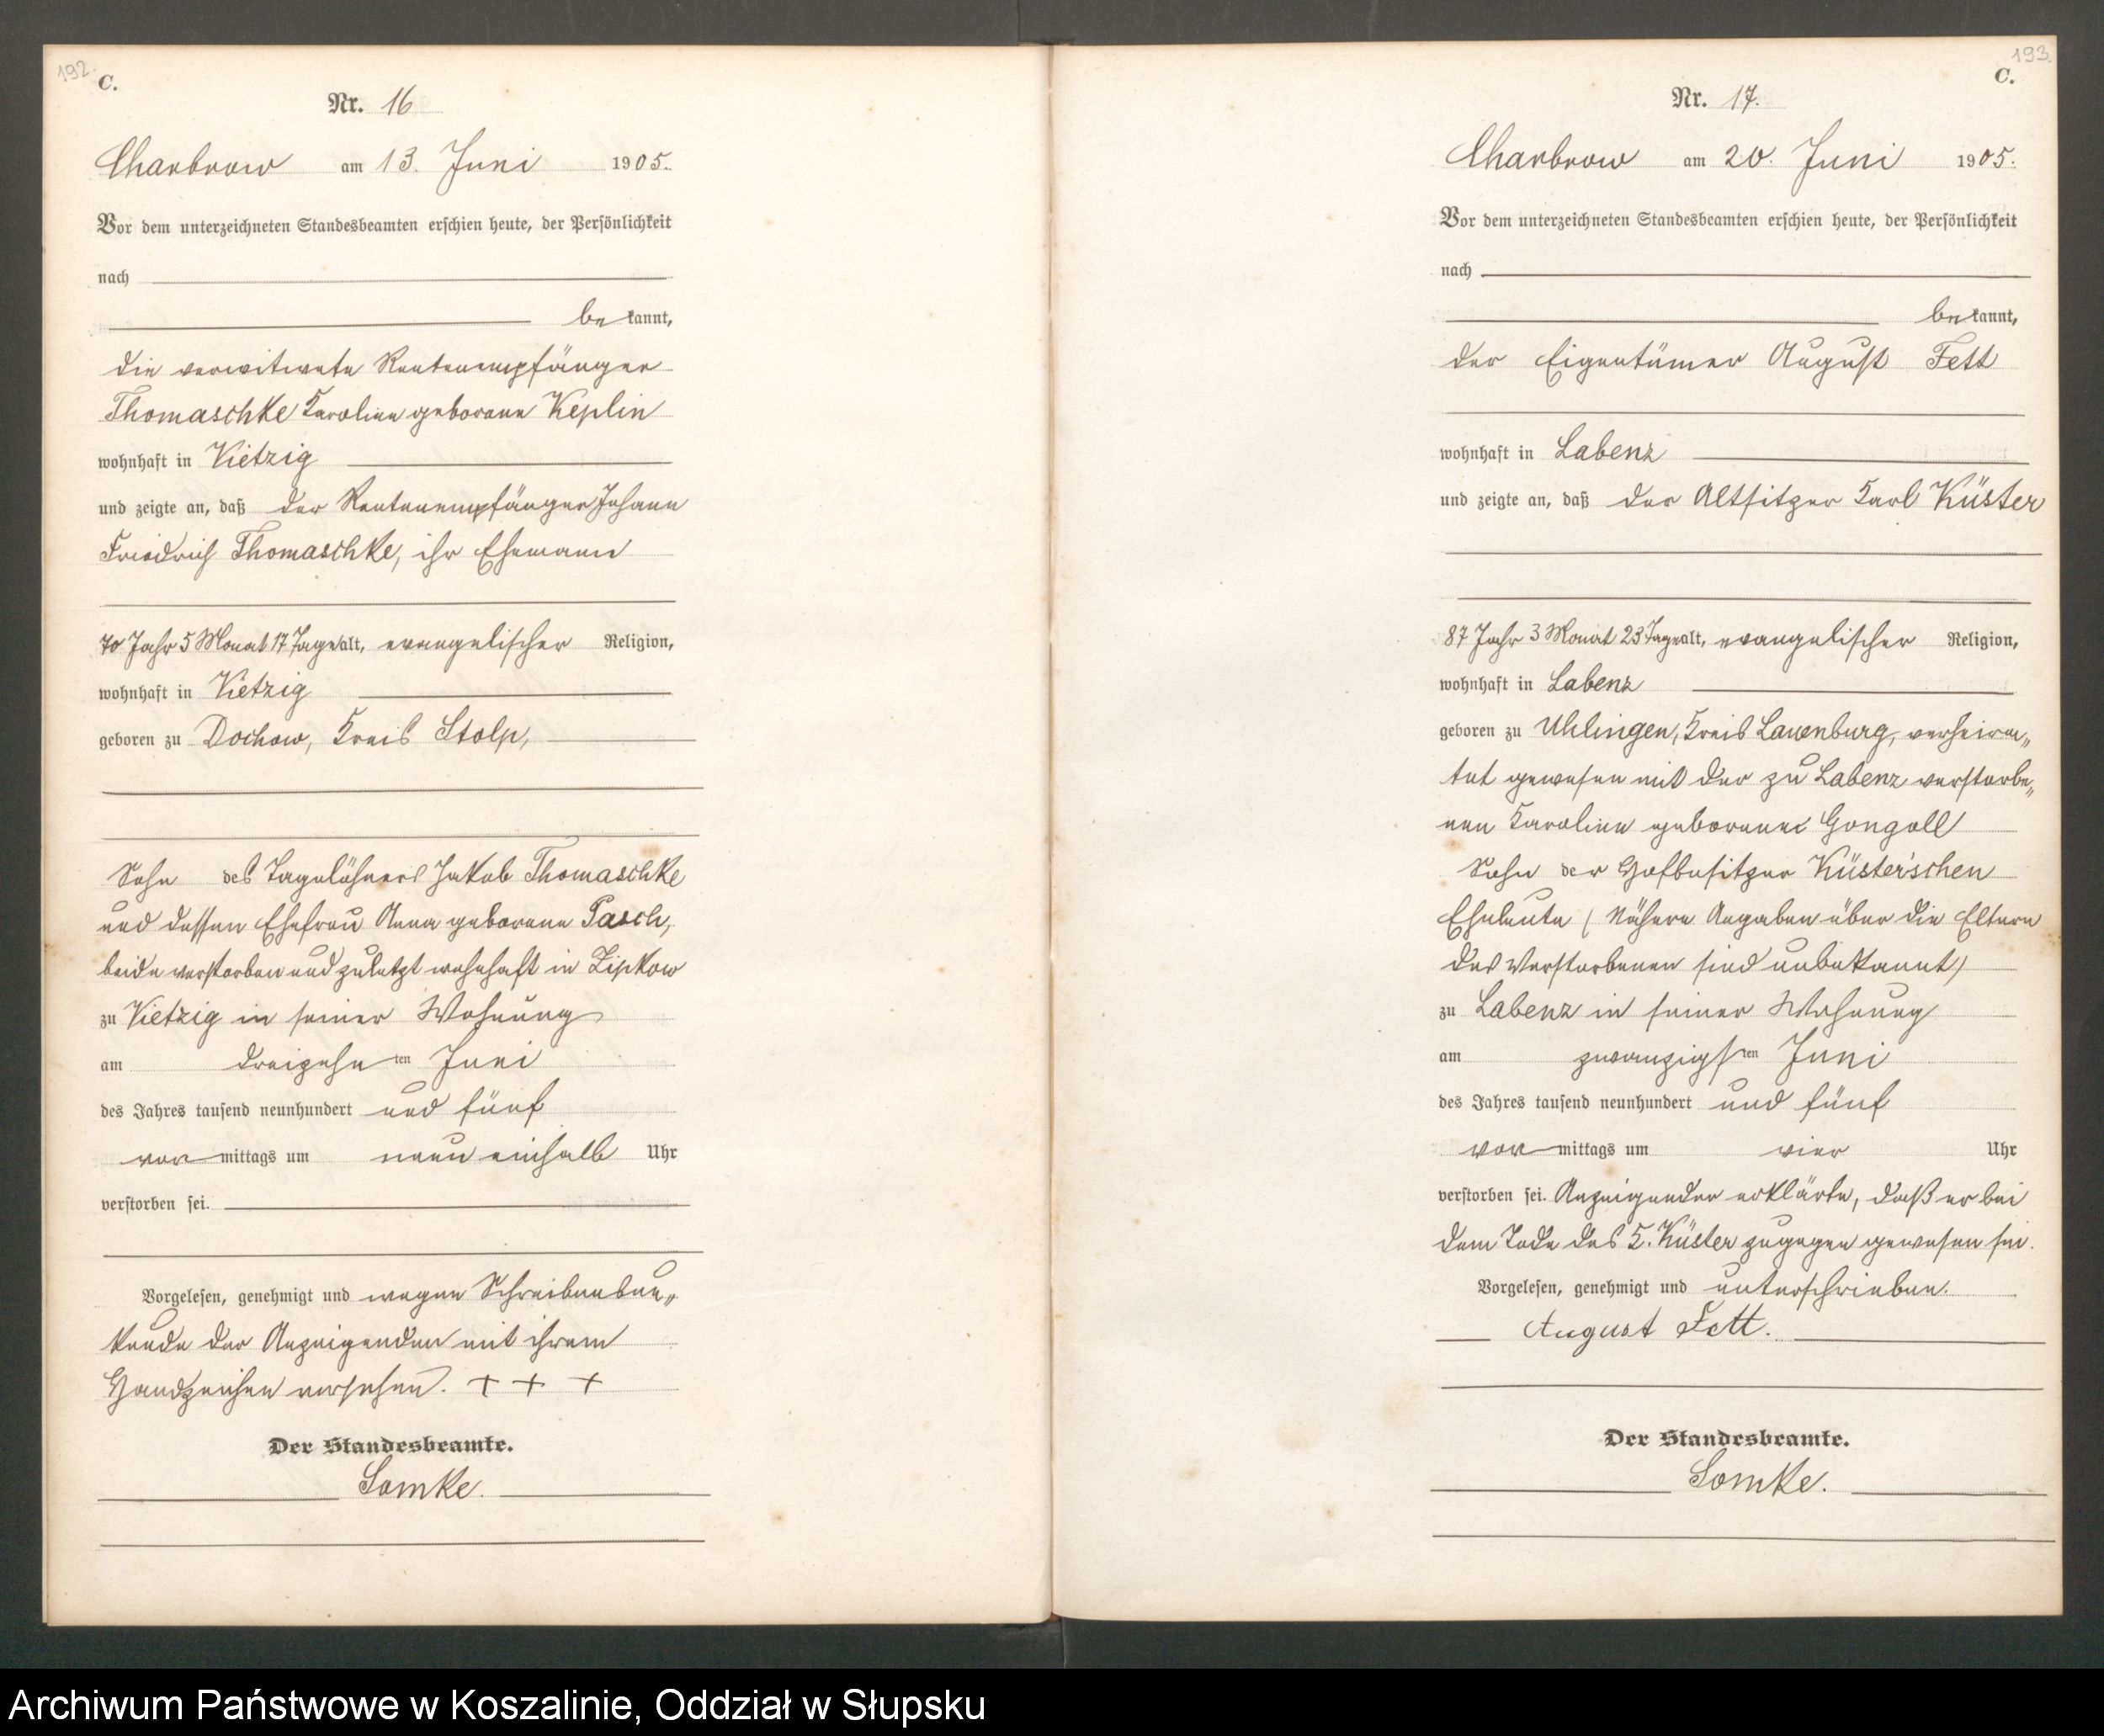 192.
C.
Nr. 16
Charbrow am 13. Juni 1905.
Vor dem unterzeichneten Standesbeamten erschien heute, der Persönlichkeit
nach
bekannt,
die verwitwete Rentenempfänger
Thomaschke Karoline geborene Keplin
wohnhaft in Vietzig
und zeigte an, daß der Rentenempfänger Johann
Friedrich Thomaschke, ihr Ehemann
70 Jahr 5 Monat 17 Tage alt, evangelischer Religion,
wohnhaft in Vietzig
geboren zu Dochow, Kreis Stolp,
Sohn des Tagelöhners Jakob Thomaschke
und dessen Ehefrau Anna geborene Pasch,
beide verstorben und zuletzt wohnhaft in Zipkow
zu Vietzig in seiner Wohnung
am dreizehnten Juni
des Jahres tausend neunhundert und fünf
vormittags um neun einhalb Uhr
verstorben sei.
Vorgelesen, genehmigt und wegen Schreibenbun„
kunde der Anzeigenden mit ihrem
Handzeichen versehen. + + +
Der Standesbeamte.
Lemke.
193.
C.
Nr. 17.
Charbrow am 20. Juni 1905.
Vor dem unterzeichneten Standesbeamten erschien heute, der Persönlichkeit
nach
bekannt,
der Eigentümer August Fett
wohnhaft in Labenz
und zeigte an, daß der Altsitzer Karl Küster
87 Jahr 3 Monat 23 Tage alt, evangelischer Religion,
wohnhaft in Labenz
geboren zu Uhlingen, Kreis Lauenburg, verheira„
tet gewesen mit der zu Labenz verstorbe„
nen Karoline geborenen Gongoll
Sohn der Hofbesitzer Küster'schen
Eheleute (Nähere Angaben über die Eltern
des Verstorbenen sind unbekannt)
zu Labenz in seiner Wohnung
am zwanzigsten Juni
des Jahres tausend neunhundert und fünf
vormittags um vier Uhr
verstorben sei. Anzeigender erklärte, daß er bei
dem Tode des K. Küster zugegen gewesen sei.
Vorgelesen, genehmigt und unterschrieben.
August Fett.
Der Standesbeamte.
Lemke.
Archiwum Państwowe w Koszalinie, Oddział w Słupsku